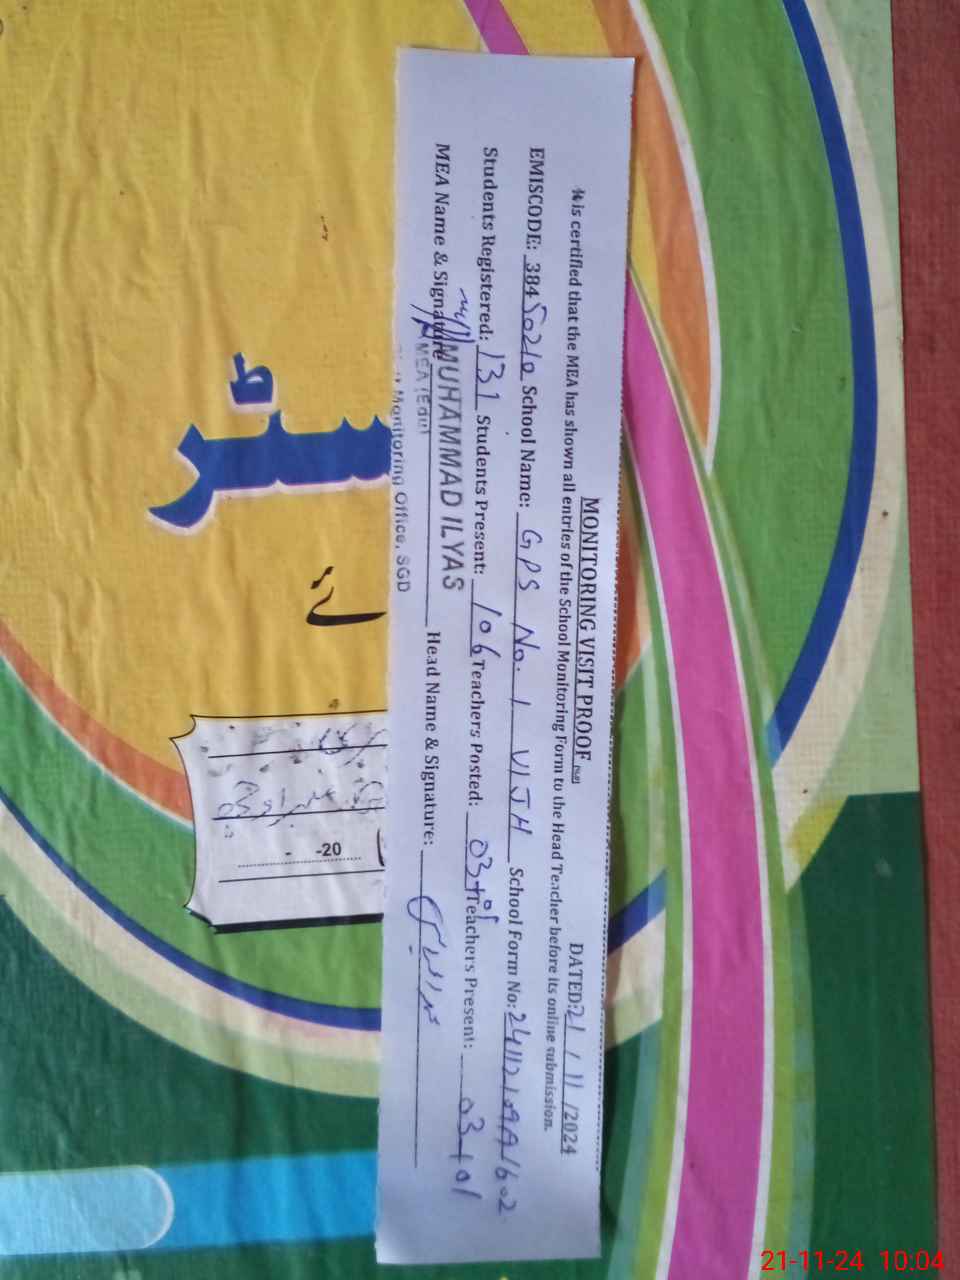 MONITORING VISIT PROOF
DATED: 21 / 11 /2024
It is certified that the MEA has shown all entries of the School Monitoring Form to the Head Teacher before its online submission.
EMISCODE: 38450210 School Name: GPS No. 1 VIJH School Form No: 241121
Students Registered: 131 Students Present: 106 Teachers Posted: 03+01 Teachers Present: 03+01
MEA Name & Signature MUHAMMAD ILYAS Head Name & Signature:
MEA (Edu)
Monitoring Office, SGD
-20
21-11-24 10:04